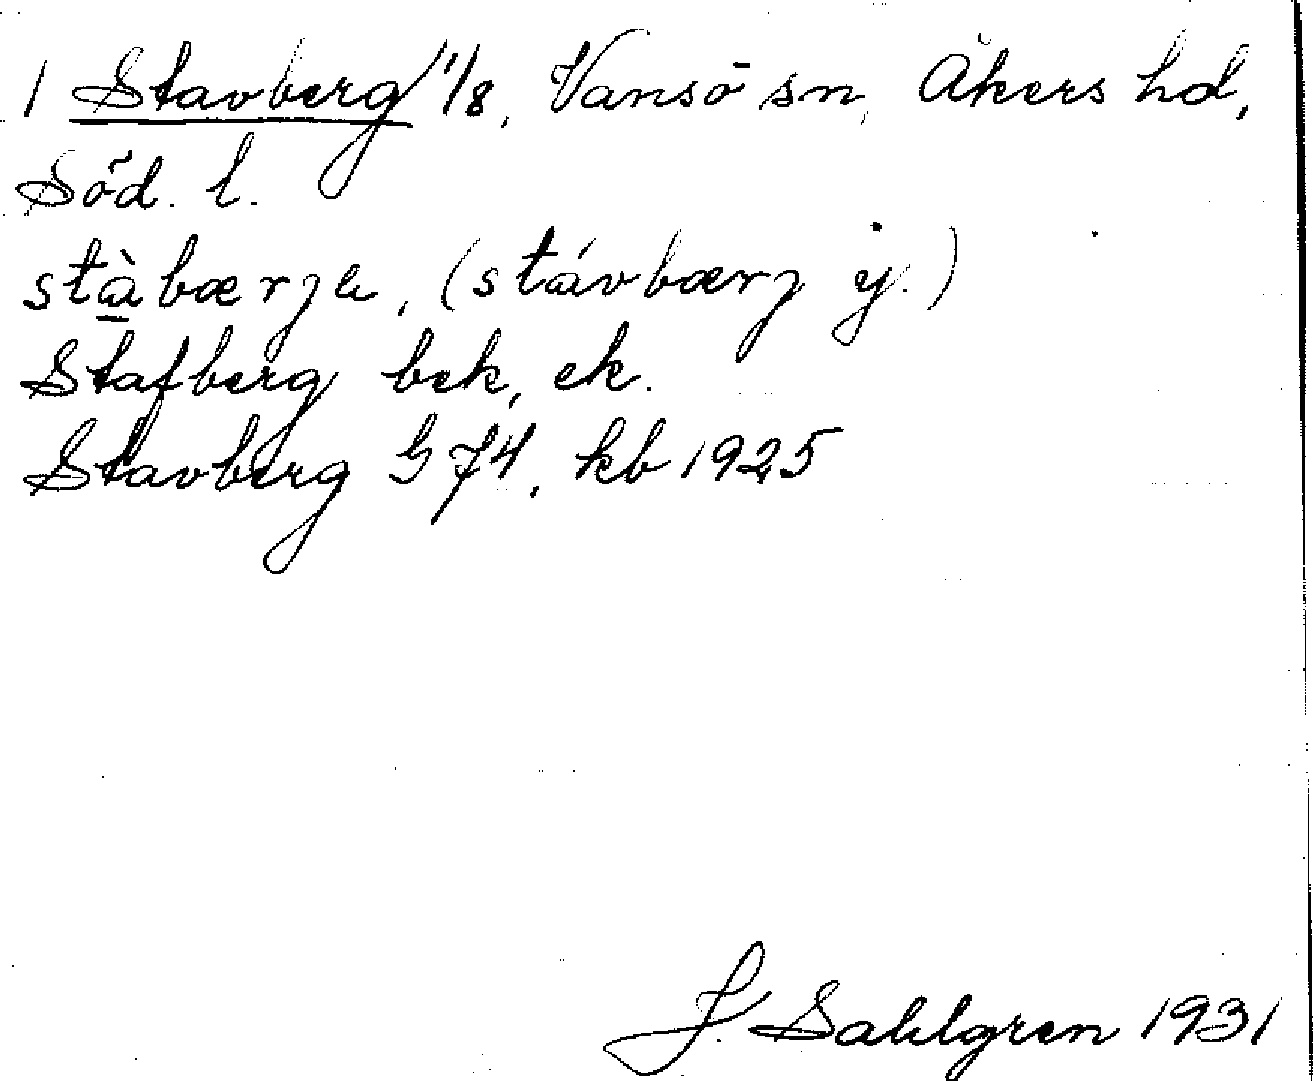 1 Stavberg 1/8, Vansö sn, Åkers hd,
Söd. l.
stàbærja, (stávbærj y.)
Stafberg bek, ek.
Stavberg G 74, kb 1925
J. Sahlgren 1931